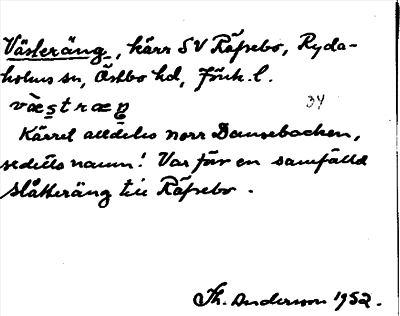 Västeräng, kärr SV Råfsebo, Ryda-
holms sn, Östbo hd, Jönk. l.
væ̀stræŋ
34
Kärret alldeles norr Dansebacken,
se detta namn! Var förr en samfälld
slåtteräng till Råfsebo.
Th. Anderson 1952.